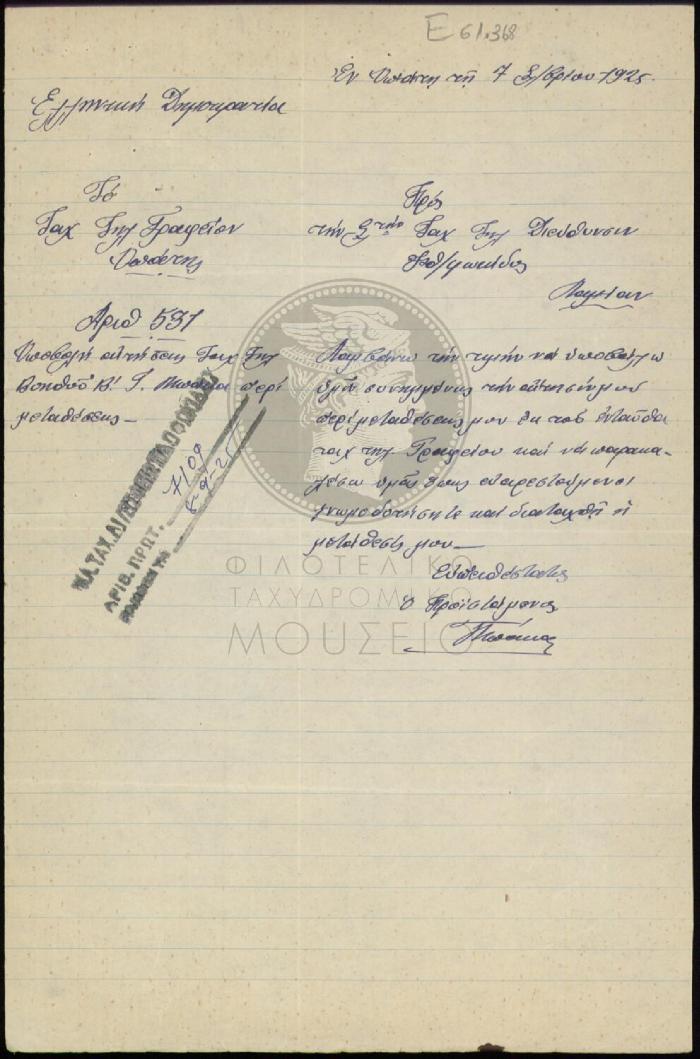 E 61.368
Εν Υπάτη τη 7 7/βρίου 1925
Ελληνική Δημοκρατία
Τό
Ταχ Τηλ Γραφείον
Υπάτης
Πρός
την Ταχ Τηλ Διεύθυνσιν
Φθ/φωκίδος
Λαμίαν
Αριθ 531
Υποβολή αιτήσεως Ταχ Τηλ
Βοηθού Β! Γ. περί
μεταθέσεως
Λαμβάνω την τιμήν να υποβάλω
υμίν συνημμένως την αίτησίν μου
περί μεταθέσεώς μου εκ του ενταύθα
ταχ τηλ Γραφείου και να παρακα-
λέσω υμάς όπως ευαρεστούμενοι
γνωμοδοτήσητε και διαταχθή η
μετάθεσίς μου
Ευπειθέστατος
Ο Προϊστάμενος
ΑΡΙΘ. ΠΡΩΤ. 7109
ΦΙΛΟΤΕΛΙΚΟ
ΤΑΧΥΔΡΟΜΙΚΟ
ΜΟΥΣΕΙΟ